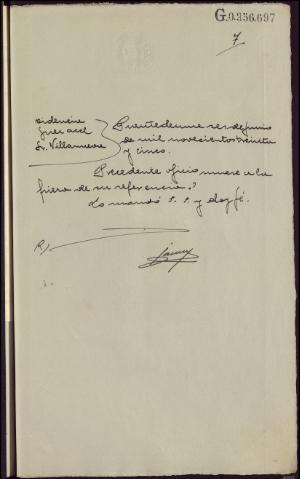 G.0.356.697
7
Providencia
Juez accl
Sr. Villanueva
Puentedeume seis de junio
de mil novecientos treinta
y cinco.
Precedente oficio unase a la
pieza de su referencia.
Lo mandó S. S. y doy fé.